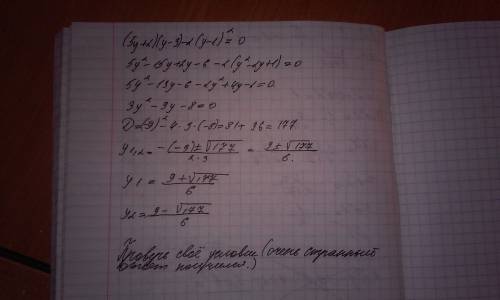 (5y+2)(y-3)-2(y-1)²=0
5y²-15y+2y-6-2(y²-2y+1)=0
5y²-13y-6-2y²+4y-2=0
3y²-9y-8=0
D=(9)²-4·3·(-8)=81+96=177
y1,2=(-(-9)±√177)/(2·3)=(9±√177)/6.
y1=(9+√177)/6
y2=(9-√177)/6
Проверь своё условие (очень странный
ответ получился.)